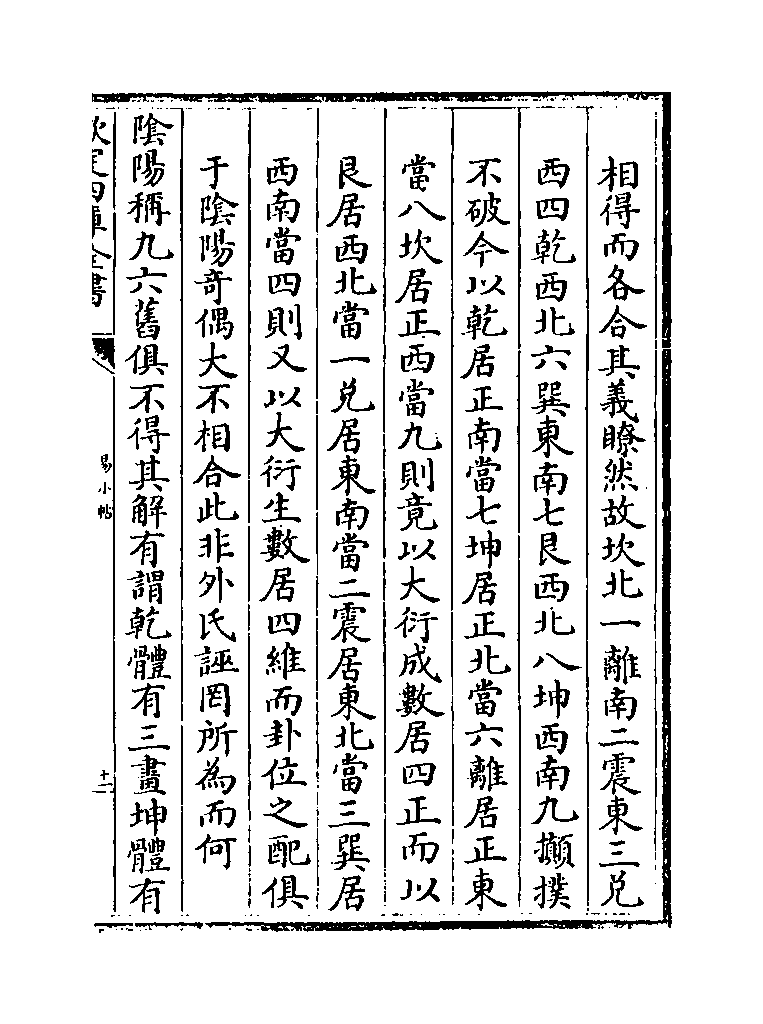 相得而各合其義瞭然故坎北一離南二震東三兌
西四乾西北六巽東南七艮西北八坤西南九攧撲
不破今以乾居正南當七坤居正北當六離居正東
當八坎居正西當九則竟以大衍成數居四正而以
艮居西北當一兌居東南當二震居東北當三巽居
西南當四則又以大衍生數居四維而卦位之配俱
于陰陽奇偶大不相合此非外氏誣罔所為而何
陰陽稱九六舊俱不得其解有謂乾體有三畫坤體有
欽定四庫全書
易小帖
十二